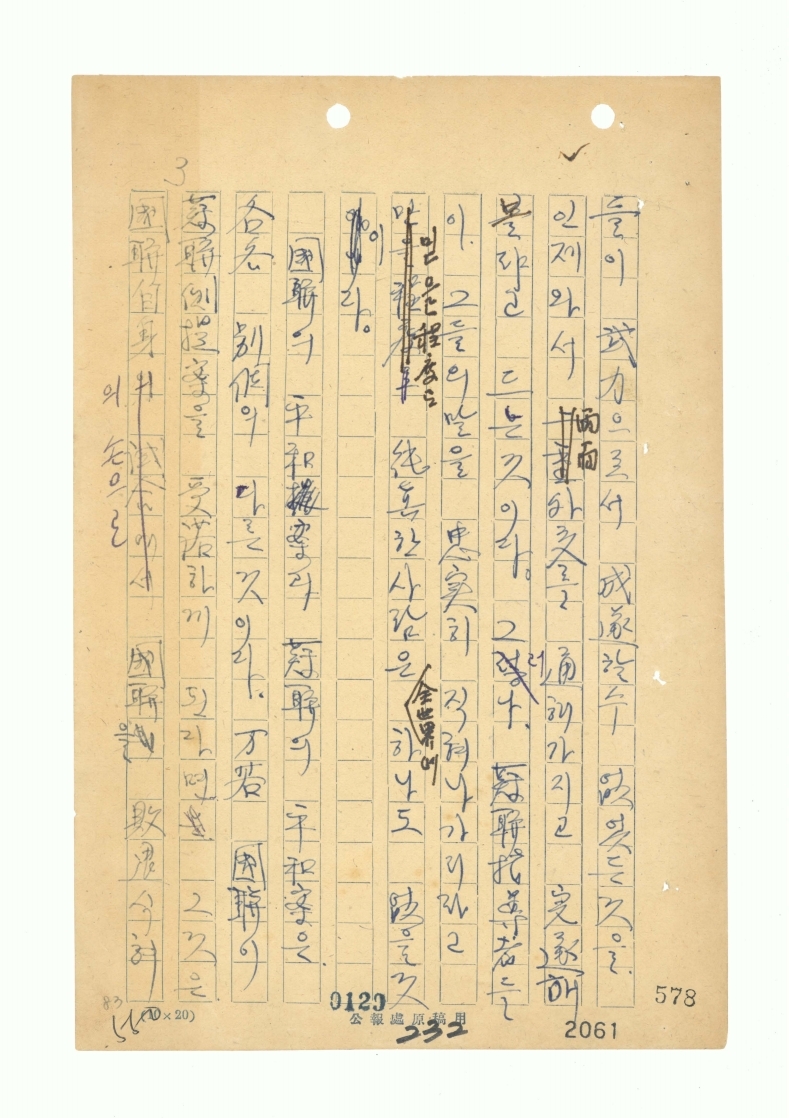 3
들이 武力으로서 成遂할수 없었든것을
인제와서 兩面外交를 通해가지고 完遂해
볼랴고 드는것이다. 그러나. 蘇聯指導者들
이. 그들의 말을 忠実히 직혀나가리라고
믿을程度로 純眞한사람은 全世界에 하나도 없을것
이다.
國聯의 平和案과 蘇聯의 平和案은.
各各 別個의 다른것이다. 万若 國聯이
蘇聯側提案을 受諾하게 된다면 그것은
國聯自身의 손으로 國聯을
578
0120
公報處原稿用
232
2061
(10×20)
55
83